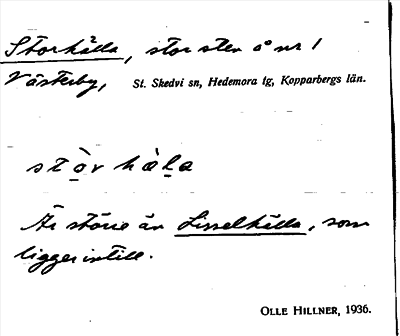 Storhälla, stor sten å nr 1
Västerby, St. Skedvi sn, Hedemora tg, Kopparbergs län.
stò̱r hàḻa
Är större än Lisselhälla, som
ligger intill.
OLLE HILLNER, 1936.